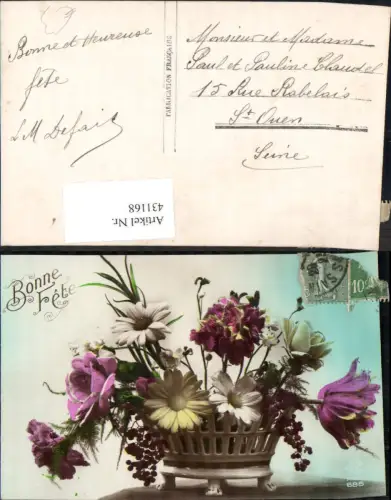 Bonne et Heureuse
fête
L M Defaix
FABRICATION FRANÇAISE
Monsieur et Madame
Paul et Pauline Claudel
15 Rue Rabelais
St Ouen
Seine
Artikel Nr.
431168
Bonne
Fête
10
686